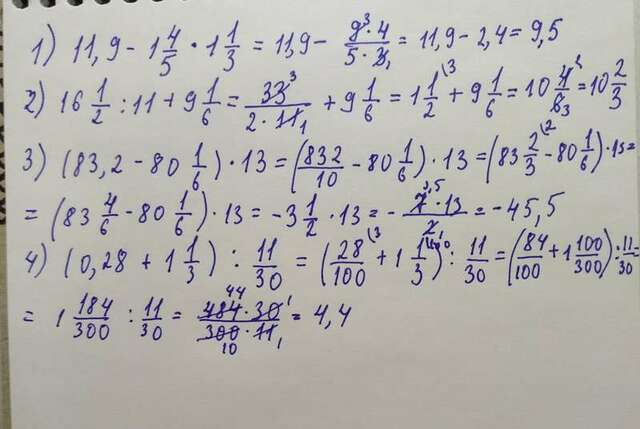 1) 11,9 - 1 4/5 · 1 1/3 = 11,9 - 9³·4/5·3₁ = 11,9 - 2,4 = 9,5
2) 16 1/2 : 11 + 9 1/6 = 33³/2·11₁ + 9 1/6 = 1 1/2\³ + 9 1/6 = 10 4²/6₃ = 10 2/3
3) (83,2 - 80 1/6) · 13 = (832/10 - 80 1/6) · 13 = (83 2/3\² - 80 1/6) · 13 =
= (83 4/6 - 80 1/6) · 13 = -3 1/2 · 13 = - 7³,⁵·13/2 = -45,5
4) (0,28 + 1 1/3) : 11/30 = (28/100\³ + 1 1/3\¹⁰⁰) : 11/30 = (84/100 + 1 100/300) : 11/30 =
= 1 184/300 : 11/30 = 484⁴⁴·30¹/300₁₀·11₁ = 4,4